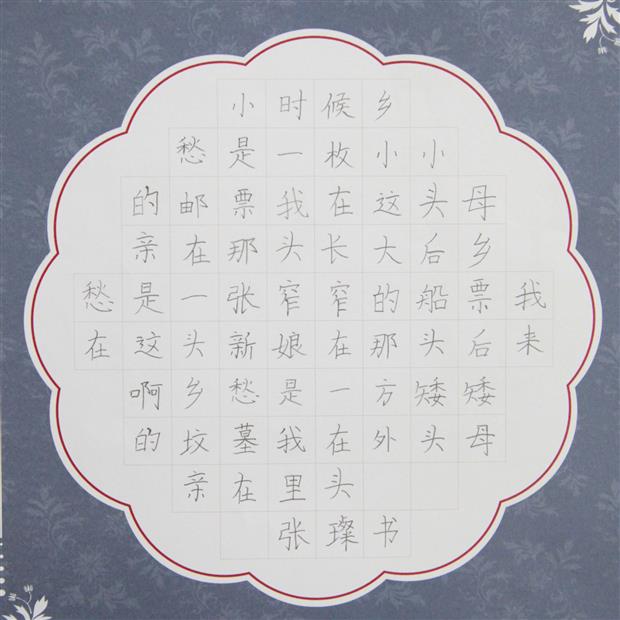 小时候乡
愁是一枚小小
的邮票我在这头母
亲在那头长大后乡
愁是一张窄窄的船票我
在这头新娘在那头后来
啊乡愁是一方矮矮
的坟墓我在外头母
亲在里头
张璨书